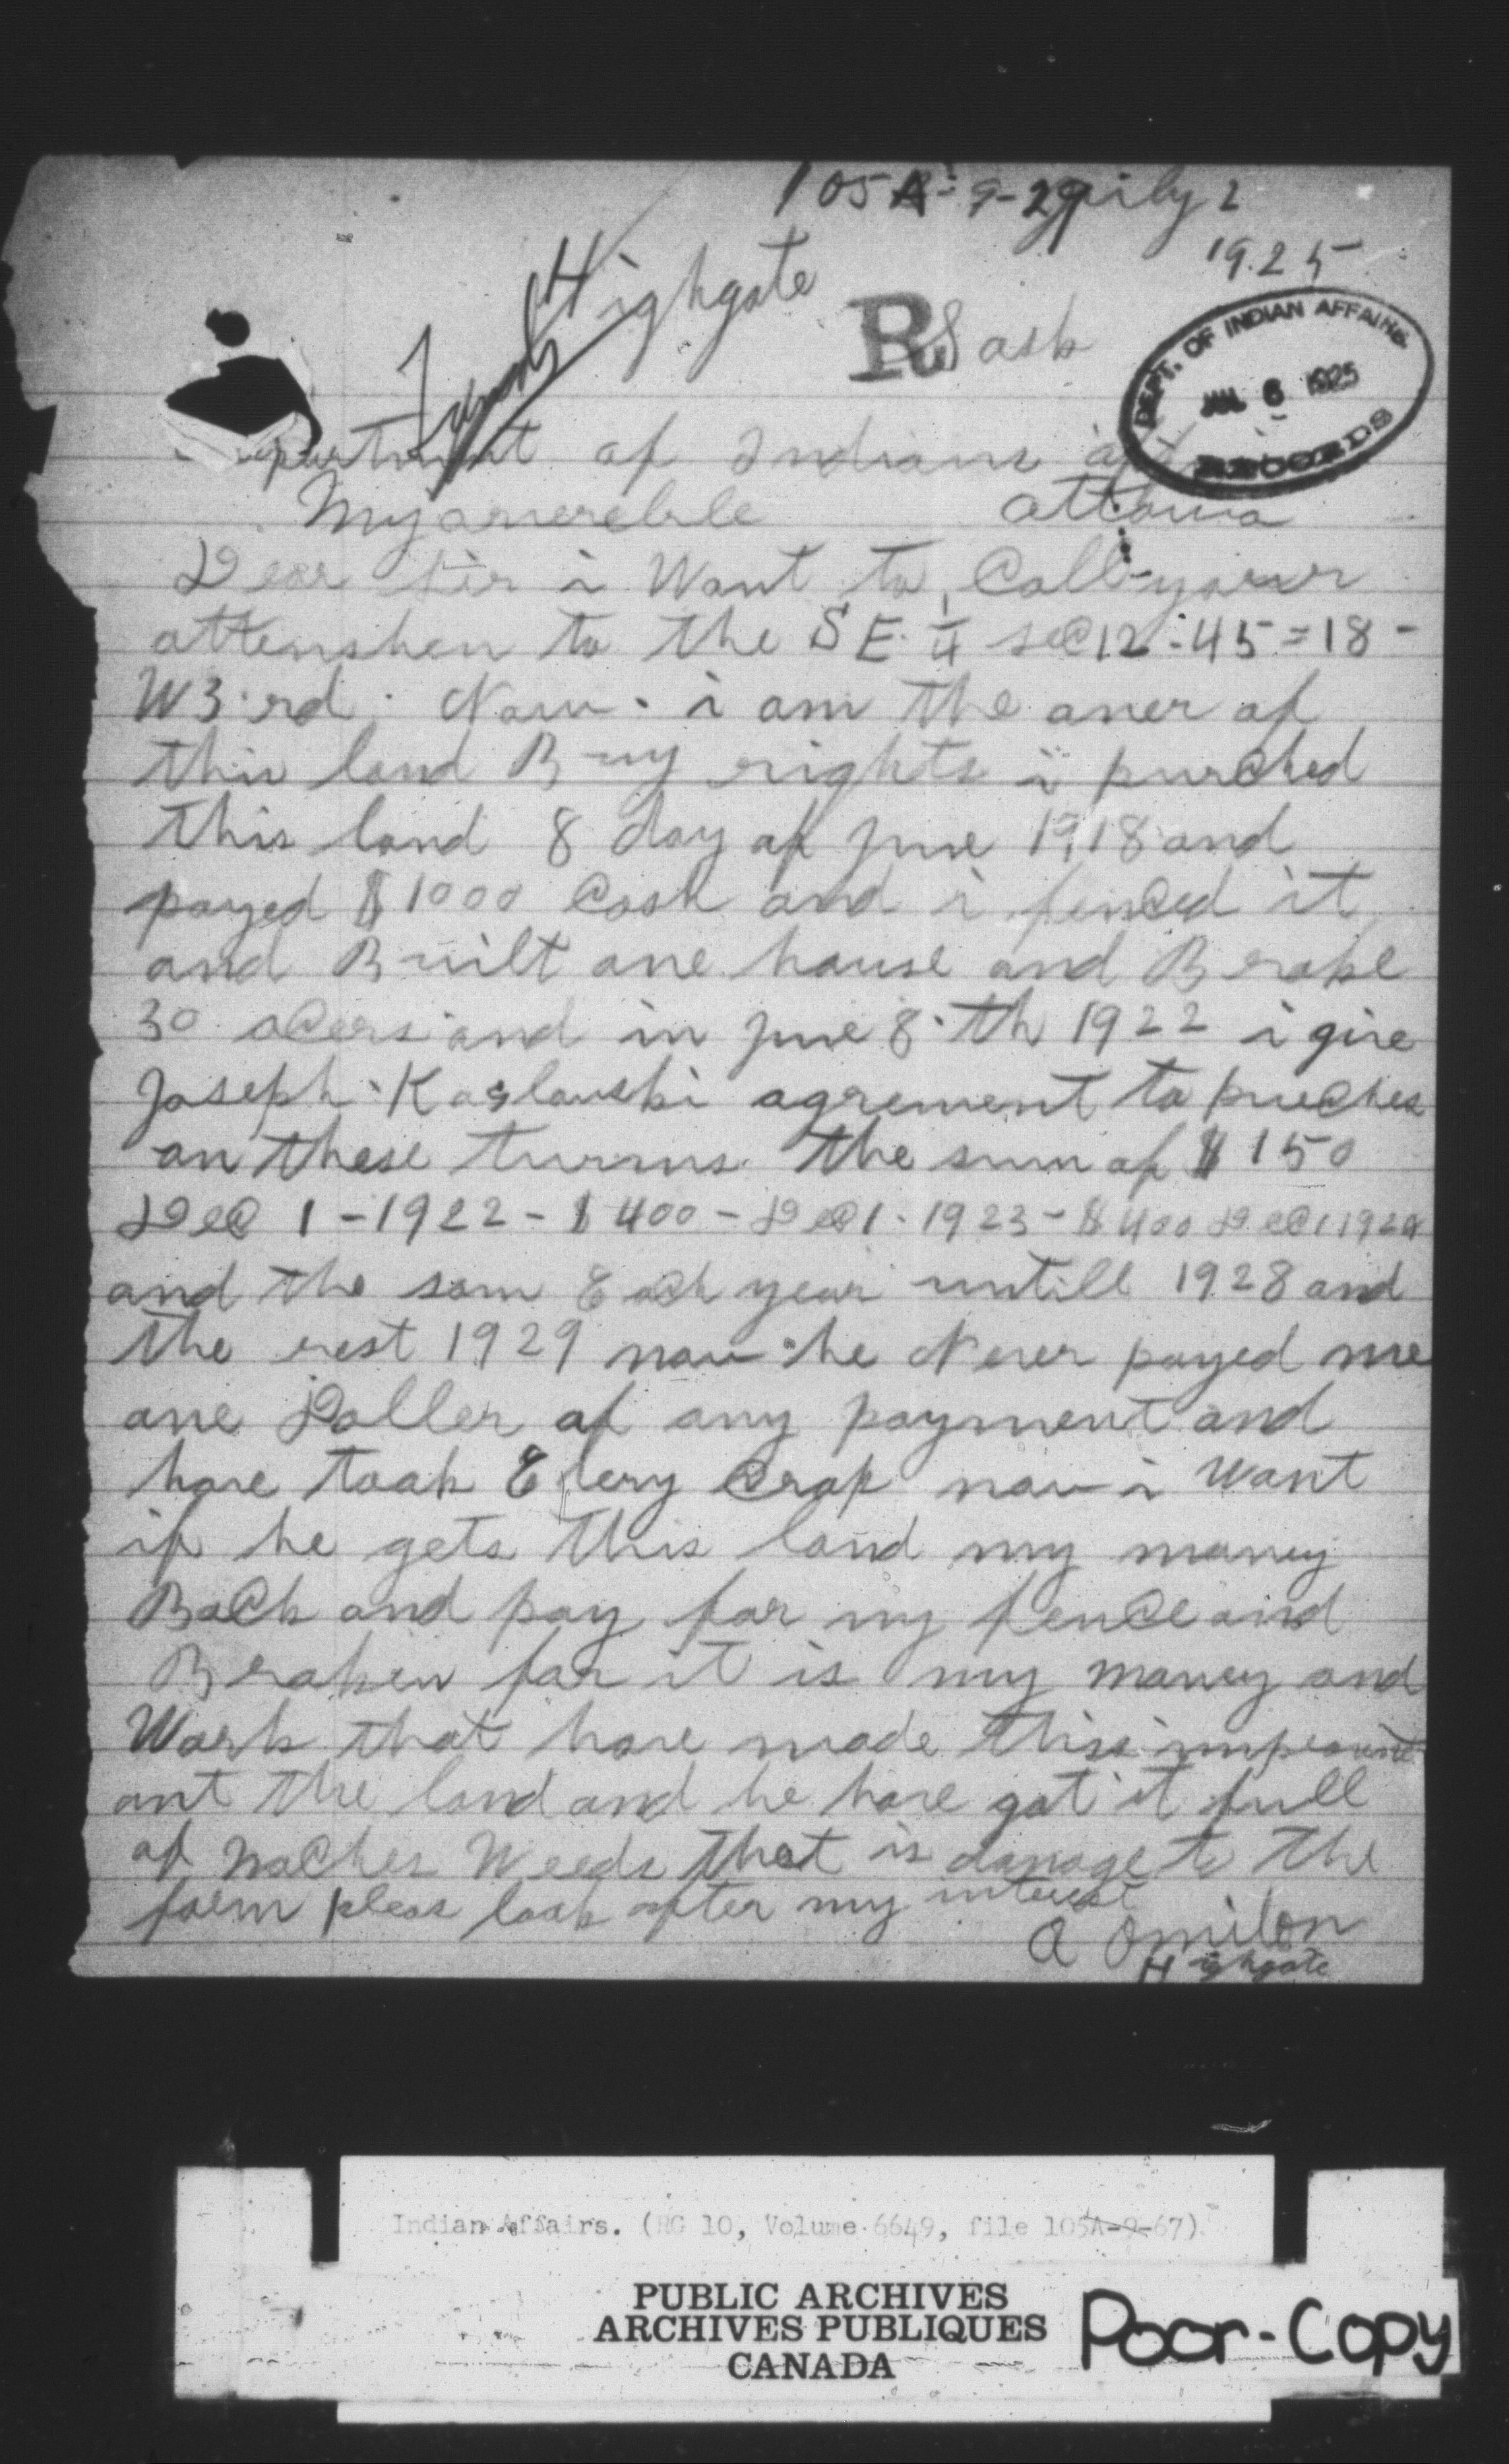 105A-9-29 july 2
1925
Highgate
R Sask
DEPT. OF INDIAN AFFAIRS
JUL 6 1925
RECORDS
partment of Indians
Myanereble attowa
Dear sir i Want to Call your
attenshen to the SE 1/4 sec 12-45=18-
W3rd. Now. i am the oner of
this land Buy rights i purched
this land 8 day of june 1918 and
payed $1000 Cash and i fenced it
and Built one house and Broke
30 acers and in june 8th 1922 i give
Joseph Koslowski agrement to purches
on these turms the sum of $150
Dec 1-1922-$400-Dec 1-1923-$400 Dec 1 1924
and the sam Each year untill 1928 and
the rest 1929 now he Never payed me
one Doller of any payment and
have took Every Crop now i Want
if he gets this land my money
Back and pay for my fence and
Broken for it is my money and
Work that have made this
ont the land and he have got it full
of noches Weeds that is damage to the
farm pleas look after my interest
A Omilon
Highgate
Indian Affairs. (RG 10, Volume 6649, file 105A-9-67)
PUBLIC ARCHIVES
ARCHIVES PUBLIQUES
CANADA
Poor-Copy